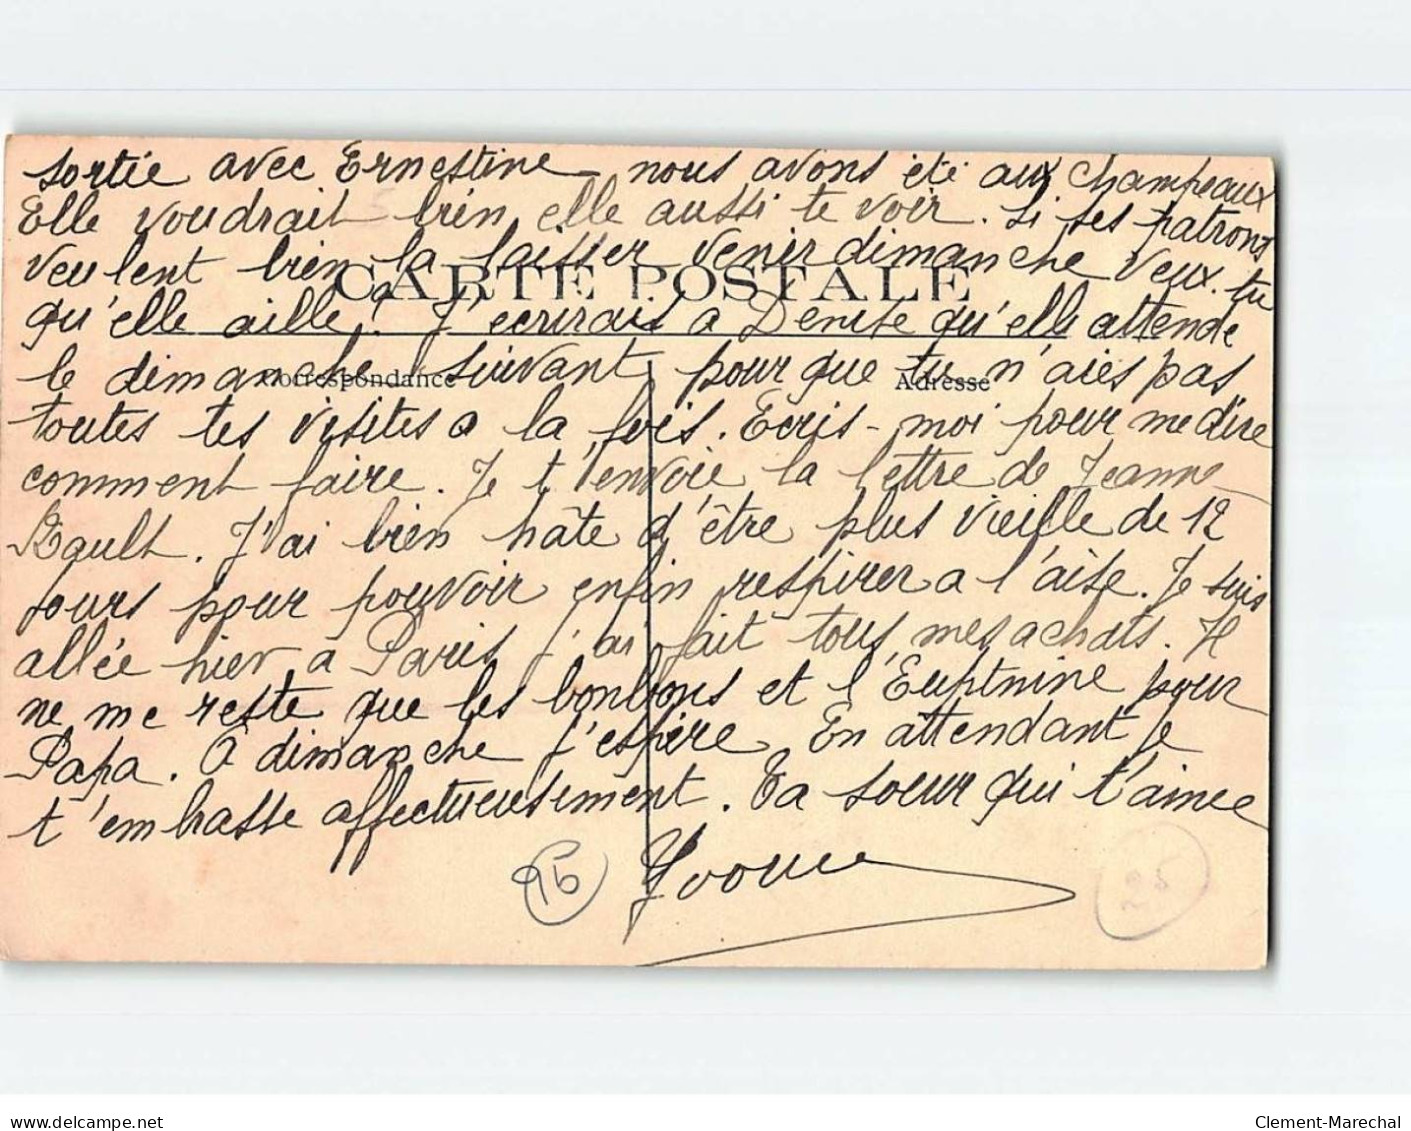 sortie avec Ernestine nous avons été aux Champeaux
Elle voudrait bien elle aussi te voir. Si ses patrons
veulent bien la laisser venir dimanche veux-tu
CARTE POSTALE
qu'elle aille? J'ecrirais a Denise qu'elle attende
le dimanche suivant pour que tu n'aies pas
Correspondance
Adresse
toutes tes visites a la fois. Ecris-moi pour me dire
comment faire. Je t'envoie la lettre de Jeanne
Rault. J'ai bien hâte d'être plus vieille de 12
jours pour pouvoir enfin respirer a l'aise. Je suis
allée hier à Paris j'ai fait tous mes achats. Il
ne me reste que les bonbons et l' pour
Papa. A dimanche j'espère. En attendant je
t'embrasse affectueusement. Ta soeur qui t'aime
Yvonne
15
25
Clement-Marechal
www.delcampe.net